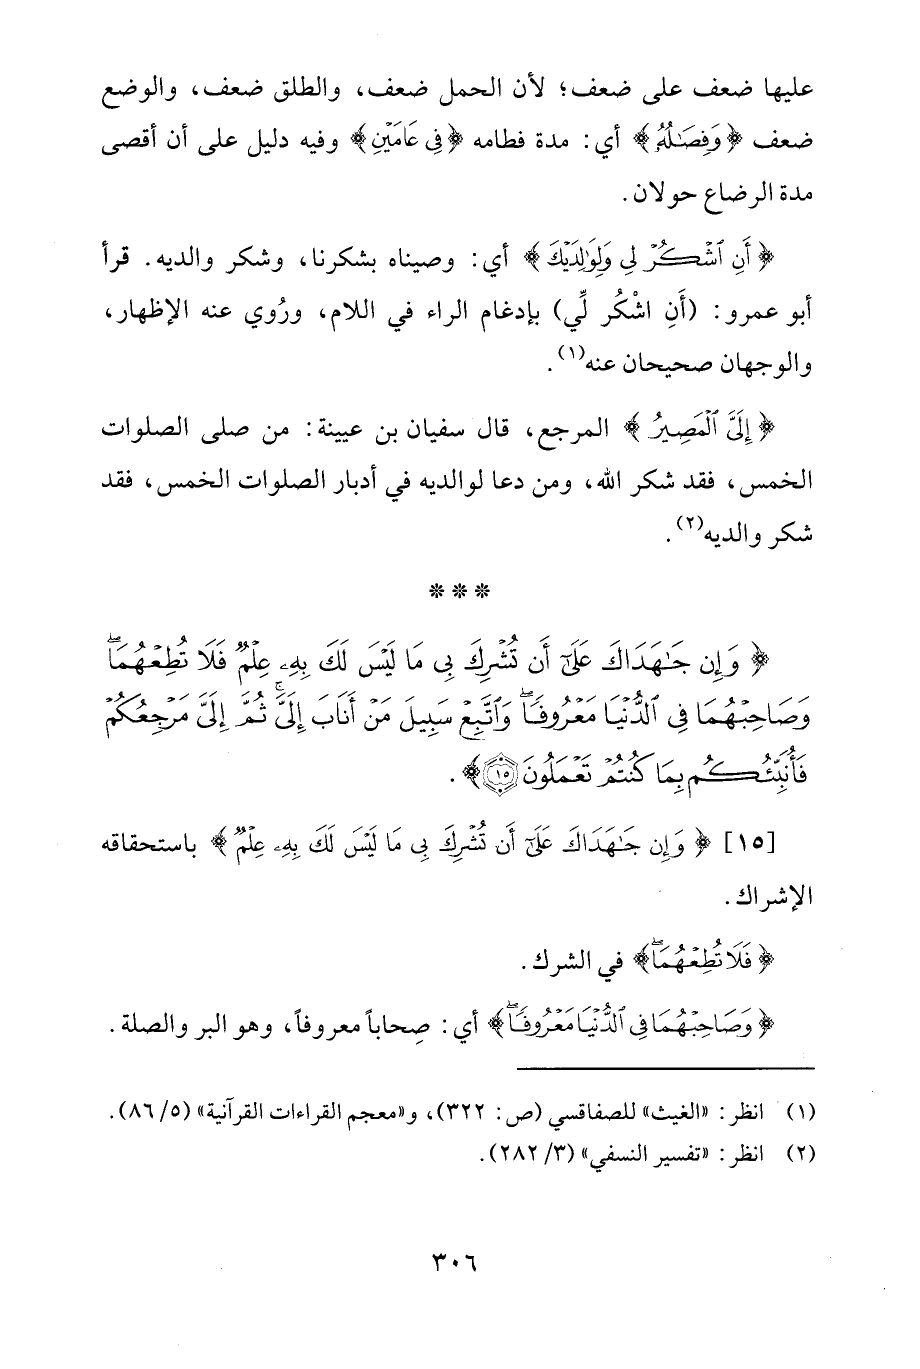 عليها ضعف على ضعف؛ لأن الحمل ضعف، والطلق ضعف، والوضع
ضعف ﴿وَفِصَٰلُهُۥ﴾ أي: مدة فطامه ﴿فِي عَامَيْنِ﴾ وفيه دليل على أن أقصى
مدة الرضاع حولان.
﴿أَنِ ٱشْكُرْ لِي وَلِوَٰلِدَيْكَ﴾ أي: وصيناه بشكرنا، وشكر والديه. قرأ
أبو عمرو: (أَنِ اشْكُر لِّي) بإدغام الراء في اللام، ورُوي عنه الإظهار،
والوجهان صحيحان عنه(١).
﴿إِلَيَّ ٱلْمَصِيرُ﴾ المرجع، قال سفيان بن عيينة: من صلى الصلوات
الخمس، فقد شكر الله، ومن دعا لوالديه في أدبار الصلوات الخمس، فقد
شكر والديه(٢).
***
﴿وَإِن جَٰهَدَاكَ عَلَىٰٓ أَن تُشْرِكَ بِي مَا لَيْسَ لَكَ بِهِۦ عِلْمٌ فَلَا تُطِعْهُمَاۖ
وَصَاحِبْهُمَا فِي ٱلدُّنْيَا مَعْرُوفًاۖ وَٱتَّبِعْ سَبِيلَ مَنْ أَنَابَ إِلَيَّۚ ثُمَّ إِلَيَّ مَرْجِعُكُمْ
فَأُنَبِّئُكُم بِمَا كُنتُمْ تَعْمَلُونَ ١٥﴾.
[١٥] ﴿وَإِن جَٰهَدَاكَ عَلَىٰٓ أَن تُشْرِكَ بِي مَا لَيْسَ لَكَ بِهِۦ عِلْمٌ﴾ باستحقاقه
الإشراك.
﴿فَلَا تُطِعْهُمَاۖ﴾ في الشرك.
﴿وَصَاحِبْهُمَا فِي ٱلدُّنْيَا مَعْرُوفًاۖ﴾ أي: صِحاباً معروفاً، وهو البر والصلة.
(١) انظر: «الغيث» للصفاقسي (ص: ٣٢٢)، و«معجم القراءات القرآنية» (٥/ ٨٦).
(٢) انظر: «تفسير النسفي» (٣/ ٢٨٢).
٣٠٦